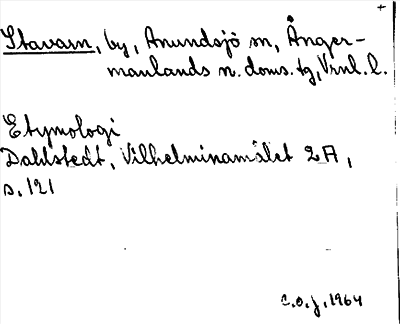 +
Stavarn, by, Anundsjö sn, Ånger-
manlands n. doms. tg, Vrnl. l.
Etymologi
Dahlstedt, Vilhelminamålet 2A,
s. 121
C.O.J., 1964